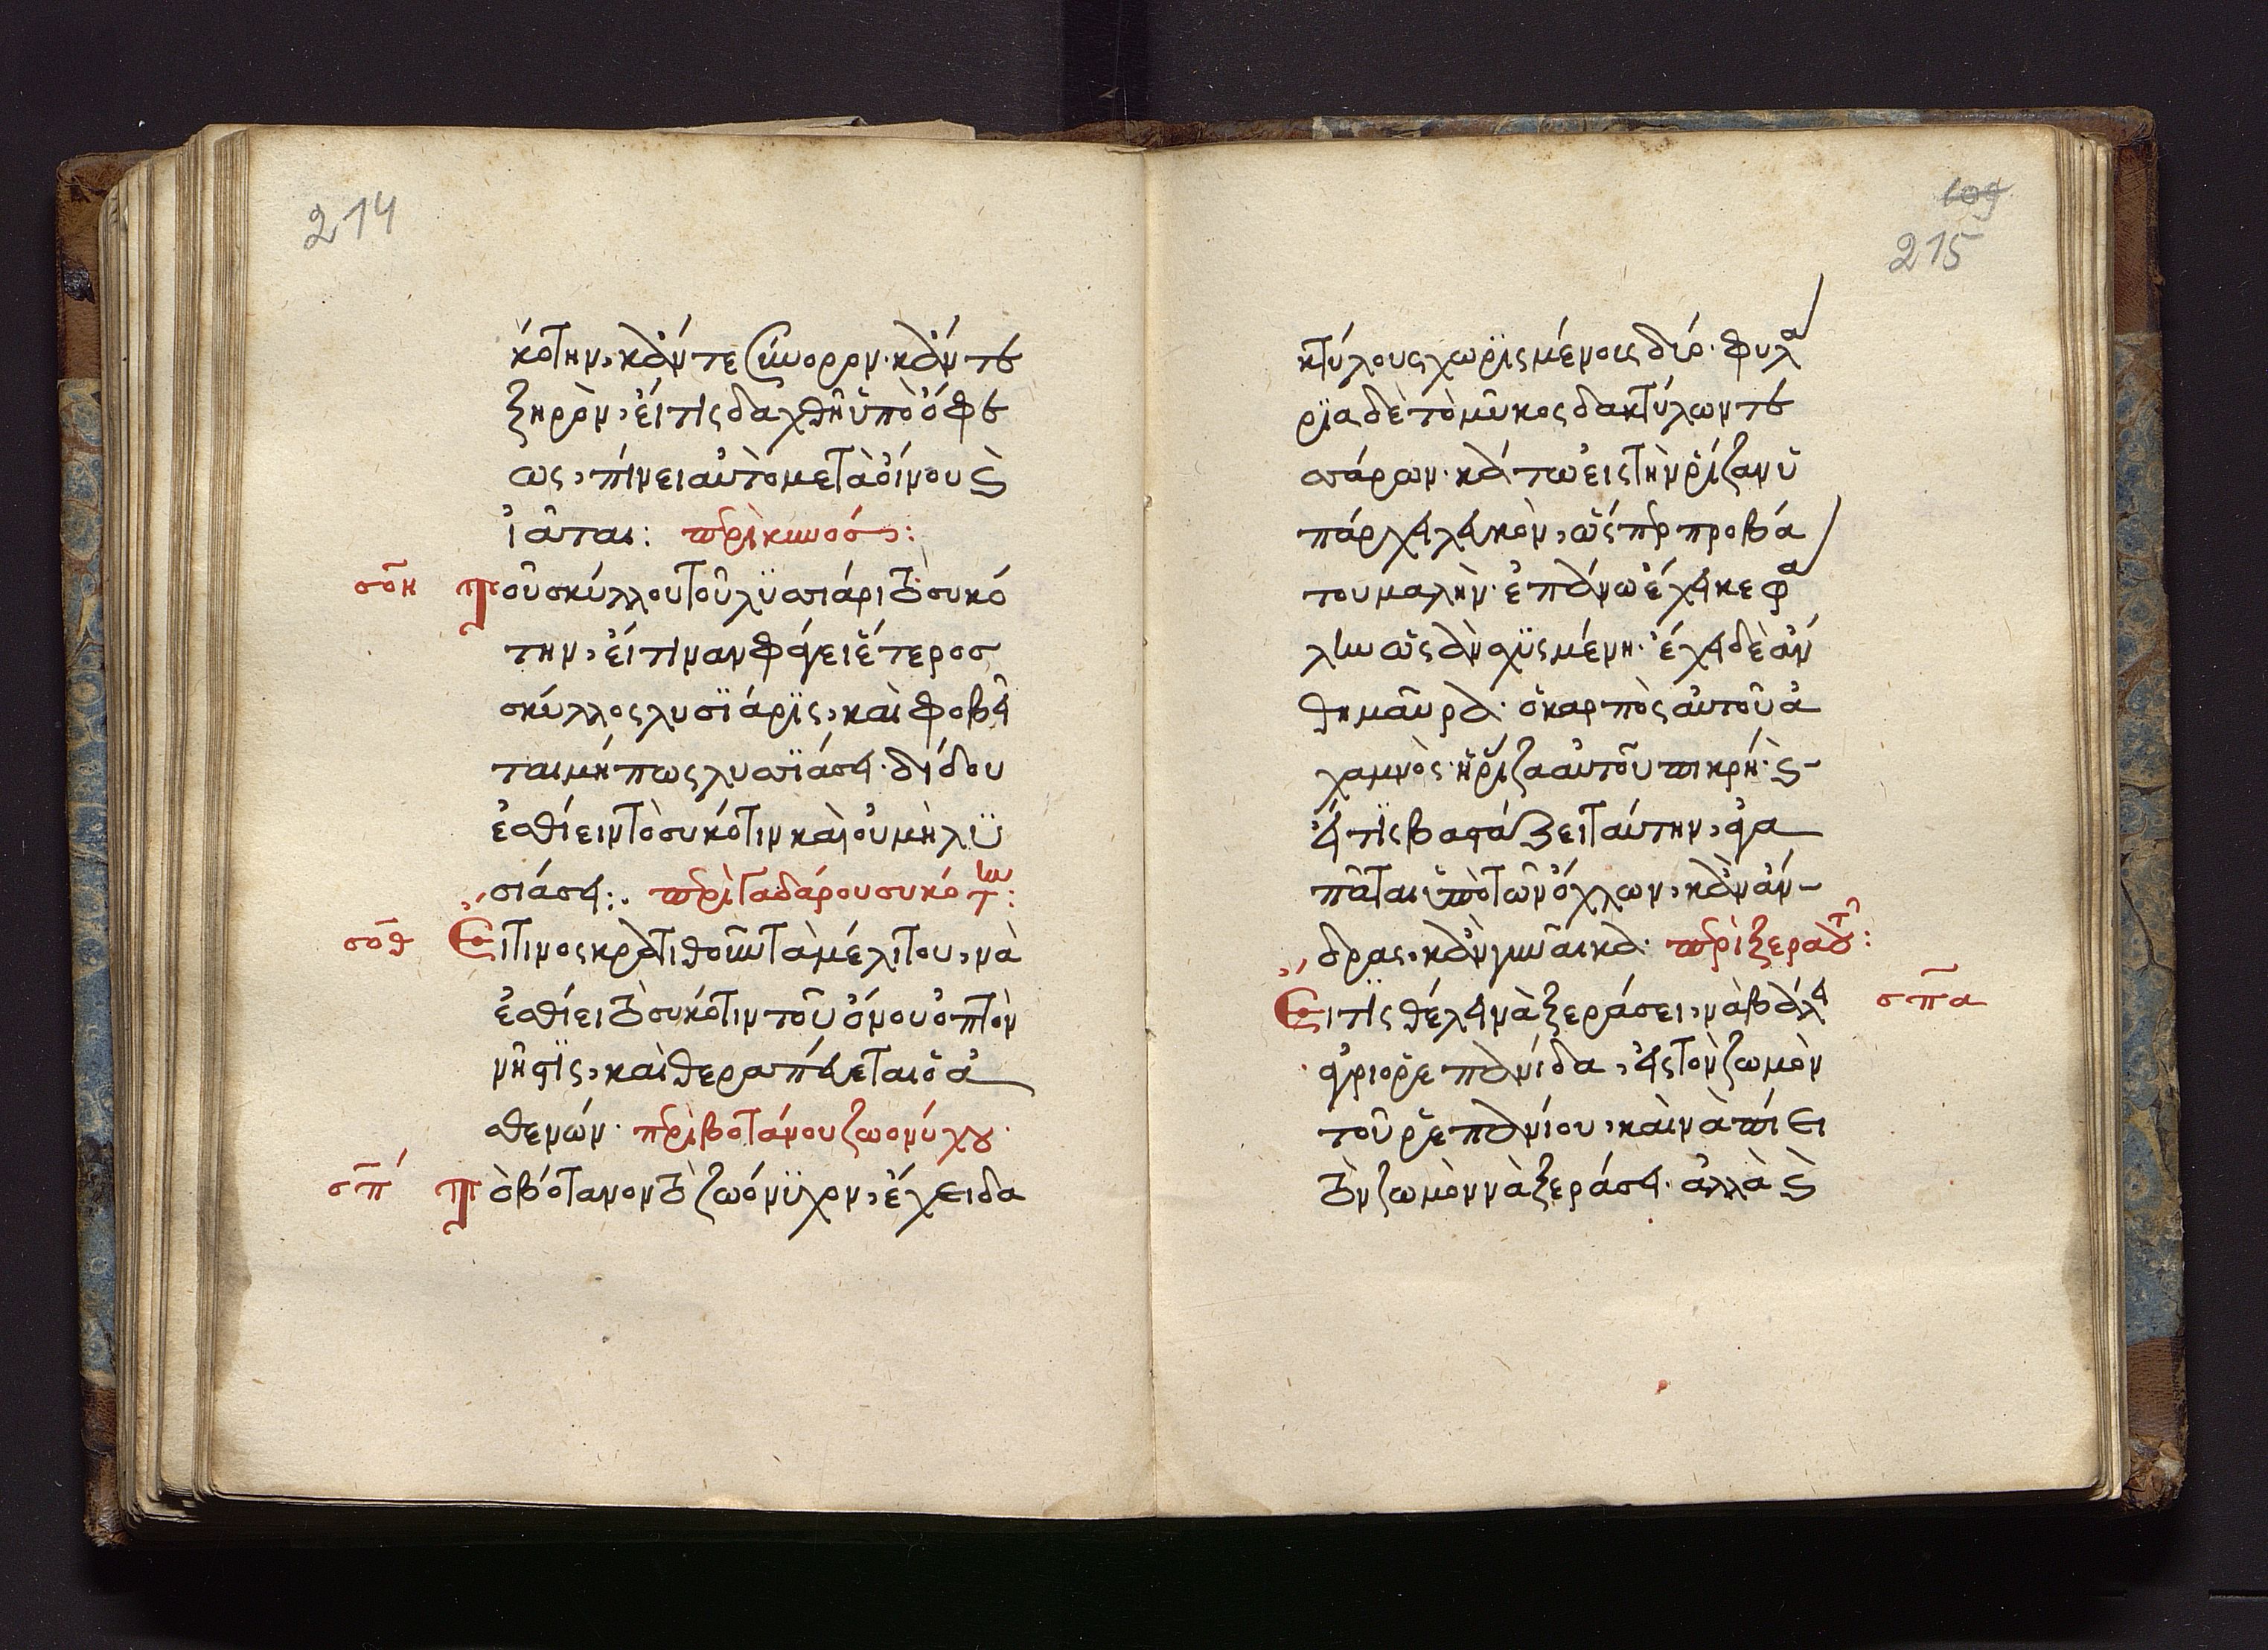 214
κότην, κἄν τε σύνορον. κἄν τε
ξηρὸν, εἴ τις δαχθῆ ὑπὸ ὄφε
ως, πίνει αὐτὸ μετὰ οἴνου ϗ
ἰᾶται: περὶ κυνός:
σοη Τοῦ σκύλλου τοῦ λϋσιάρι τὸ συκό
την, εἴ τιναν φάγει ἕτερος
σκύλλος λυσϊάρϊς, καὶ φοβεῖ
ται μήπως λυσϊάσει. δίδου
ἐσθίειν τὸ συκότιν καὶ οὐ μὴ λϋ
σιάσει:. περὶ γαδάρου συκότην:
σοθ Εἴ τινος κρατιθοῦν τὰ μέλι του, νὰ
ἐσθίει τὸ συκότιν τοῦ ὄνου ὀπτὸν
νῆστϊς, καὶ θεραπεύεται ὁ ἀ
σθενῶν. περὶ βοτάνου ζωονύχου.
σπ Τὸ βότανον τὸ ζωόνϋχον, ἔχει δα
109
215
κτύλους χωρϊσμένοις δύο. φυλα
ρϊα δὲ τὸ μῆκος δακτύλων τε
σάρων. κάτω εἰς τὴν ῥίζαν ὑ
πάρχει λευκὸν, ὥσπερ προβά
του μαλὴν. ἐπάνω ἔχει κεφα
λὴν ὡς ἀνχϋσμένη. ἔχει δὲ ἄν
θη μαῦρα. ὁ καρπὸς αὐτοῦ ἀ
χαμνὸς. ἡ ῥίζα αὐτοῦ πικρή. ϗ
εἴ τϊς βαστάξει ταύτην, ἀγα
πᾶται ὑπὸ τῶν ὄχλων, κἂν ἄν
δρας, κἂν γυναῖκα. περὶ ξερατοῦ:
σπα Εἴ τϊς θέλει νὰ ξεράσει, νὰ βάλει
ἀγριορεπανίδα, εἰς τὸν ζωμὸν
τοῦ ρεπανίου, καὶ νὰ πίει
τὸν ζωμὸν νὰ ξεράσει. ἀλλὰ ϗ